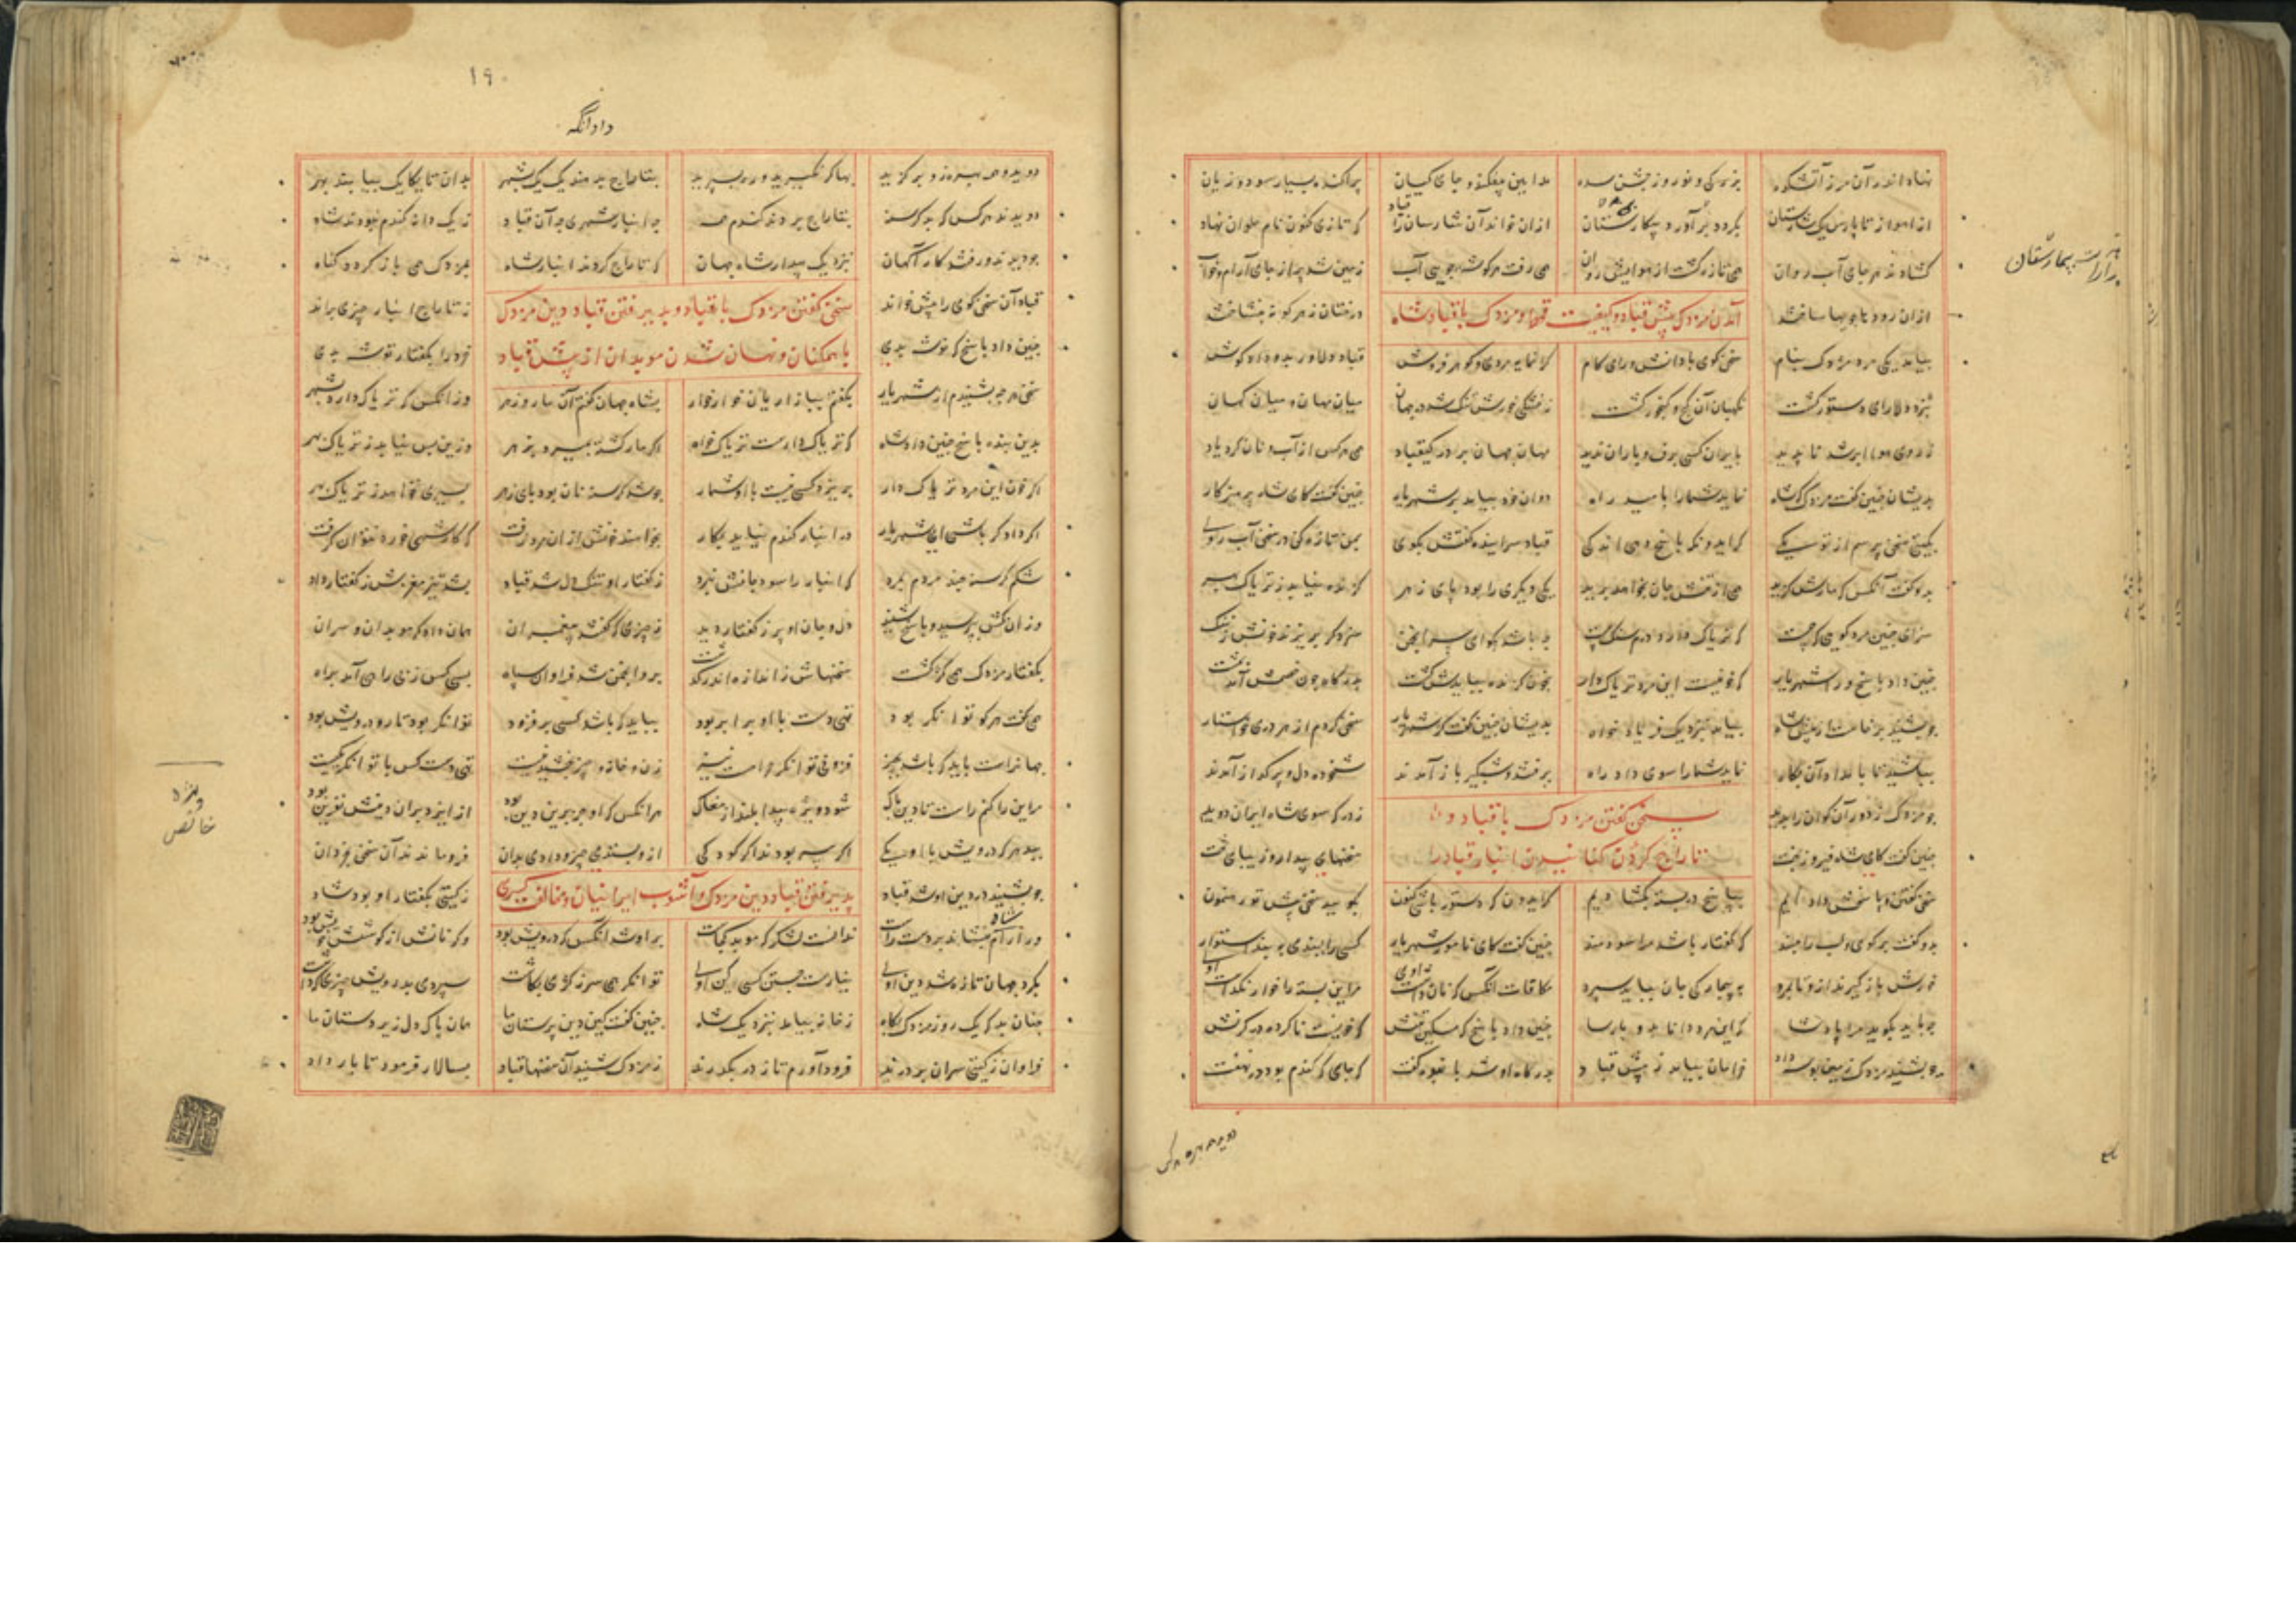 نهاد اندر آن مرز آتشکده بزرگی و نوروز و جشن سده مداین پی افکند و جای کیان پراکنده بسیار سود و زیان
از اهواز تا پارس یک شارستان بکرد و برآورد بیمارستان ازان خواند آن شارسان را قباد که تازی کنون نام حلوان نهاد
بیمارستان
گشادند هر جای آب روان همی تازه گشت از هوایش روان همی رفت هر گوشه جویی آب زمین شد پر از جای آرام و خواب
ازان رودها جویها ساختند آمدن مزدک پیش قباد و کیفیت قحط و مزدک با قباد شاه درختان ز هر گونه بنشاختند
بیامد یکی مرد مزدک بنام سخن گوی با دانش و رای و کام گرانمایه مردی و گوهر فروش قباد دلاور بدو داد گوش
بنزد دلارای دستور گشت نگهبان آن گنج و گنجور گشت ز خشکی خورش تنگ شد در جهان میان مهان و میان کهان
ز روی هوا ابر شد ناپدید بایران کسی برف و باران ندید مهان جهان بر در کیقباد همی هر کس از آب و نان کرد یاد
بدیشان چنین گفت مزدک که شاه نماید شما را بامید راه دوان خود بیامد بر شهریار چنین گفت کای شاه پرهیزکار
بگیتی سخن پرسم از تو یکی گر ایدونکه پاسخ دهی اندکی قباد سراینده گفتش بگوی بمن تازه کن در سخن آب روی
بدو گفت آنکس که مارش گزید همی از تنش جان بخواهد پرید یکی دیگری را بود پای زهر گزنده نیابد ز تریاک بهر
سزای چنین مرد گویی که چیست که تریاک دارد درم سنگ بیست
چنین داد پاسخ ورا شهریار که خونیست این مرد تریاک دار بخون گزنده ببایدش کشت بدرگاه چون خصمش آمد بمشت
چو بشنید برخاست از پیش شاه بیامد بنزدیک فریاد خواه بدیشان چنین گفت کز شهریار سخن کردم از هر دری خواستار
بباشید تا بامداد آن پگاه نمایم شما را سوی داد راه برفتند و شبگیر باز آمدند شخوده دل و پر گداز آمدند
چو مزدک ز دور آن گوان را بدید سخن گفتن مزدک با قباد و ز در که سوی شاه ایران دوید
چنین گفت کای شاه فیروز بخت تاراج کردن انبار قباد را سخنهای بیدار و زیبای تخت
سخن گفتم و پاسخش داد ایم بپاسخ در بسته بگشادیم گر ایدون که دستور باشی کنون بگوید سخن پیش تو رهنمون
بدو گفت برگوی و لب را مبند که گفتار باشد مرا سودمند چنین گفت کای نامور شهریار کسی را ببندی به بند استوار
خورش باز گیرند ازو تا بمرد به بیچارگی جان بباید سپرد مکافات آنکس که نان داشت اوی مر این بسته را خوار بگذاشت او
چه باید بگوید مرا پادشا که این مرد دانا بد و پارسا چنین داد پاسخ که مسکین تنش که خونیست ناکرده در گردنش
چو بشنید مزدک زمین بوسه داد خرامان بیامد ز پیش قباد بدرگاه او شد بانبوه گفت که جای که گندم بود در نهفت
۱۹
داد آنگه
بتاراج بدهند یک یک شهر بدان تا یکایک بیابند بهر
دویدند هر کس که بد گرسنه بتاراج بردند گندم همه چه انبار شهری چه آن قباد ز یک دانه گندم نبودند شاد
چو دیدند و رفتند کار آگهان نزدیک بیدار شاه جهان که تاراج کردند انبار شاه بمزدک همی باز گردد گناه
قباد آن سخن گوی را پیش خواند سخن گفتن مزدک با قباد و پذیرفتن قباد دین مزدک ز تاراج انبار چیزی براند
چنین داد پاسخ که نوشه بدی با همکنان و نهان شدن موبدان از پیش قباد خرد را بگفتار توشه بدی
سخن هر چه بشنیدم از شهریار بگفتم ببازاریان خوار خوار بشاه جهان گفتم آن مار و زهر وزانکس که تریاک دارد بشهر
بدین بنده پاسخ چنین داد شاه که تریاک دارست تریاک خواه اگر مار گشته بمیرد بزهر وزین پس نیابد ز تریاک بهر
اگر خون این مرد تریاک دار بریزد کسی نیست با او شمار چو شد گرسنه نان بود پای زهر بسیری نخواهد ز تریاک بهر
اگر دادگر باشی ای شهریار در انبار گندم نیاید بکار
شکم گرسنه چند مردم بمرد که انبار را سود جانش نبرد ز گفتار او تنگ دل شد قباد بشد تیز مغزش ز گفتار داد
وزان پس بپرسید و پاسخ شنید دل و جان او پر ز گفتار دید ز چیزی که گفتند پیغمبران همان دادگر موبدان و سران
بگفتار مزدک همی کژ گشت سخنهاش ز اندازه اندر گذشت برو انجمن شد فراوان سپاه بسی کس ز بی راهی آمد براه
همی گفت هر کو توانگر بود تهی دست با او برابر بود نباید که باشد کسی بر فزود توانگر بود تار و درویش پود
جهان راست باید که باشد بچیز فزونی توانگر حرامست نیز زن و خانه و چیز بخشیدنیست تهی دست کس با توانگر یکیست
من این را کنم راست تا دین پاک شود ویژه پیدا بلند از مغاک هر آنکس که او جز برین دین بود از ایزد بر آن دمش نفرین بود
ویژه
خالص
ببد هر که درویش با او یکی اگر پیر بودند اگر کودکی از و بستدی چیز و دادی بدان فرو ماندند آن سخن بخردان
چو بشنید در دین او شد قباد پذیرفتن قباد دین مزدک و آشوب ایرانیان و مخالفت کسری ز گیتی بگفتار او بود شاد
ورا شاه بنشاند بر دست راست ندانست لشکر که موبد کجاست بر او شد آنکس که درویش بود وگر نانش از کوشش خویش بود
بگرد جهان تازه شد دین اوی نیارست جستن کسی کین اوی توانگر همی سر ز کژی بکاست سپردی بدرویش چیزی که خواست
چنان بد که یک روز مزدک پگاه ز خانه بیامد بنزدیک شاه چنین گفت کین دین پرستان ما همان پاک دل زیردستان ما
فراوان ز گیتی سران بر درند فرود آورم تا ز در بگذرند ز مزدک شنید آن سخنها قباد بسالار فرمود تا بار داد